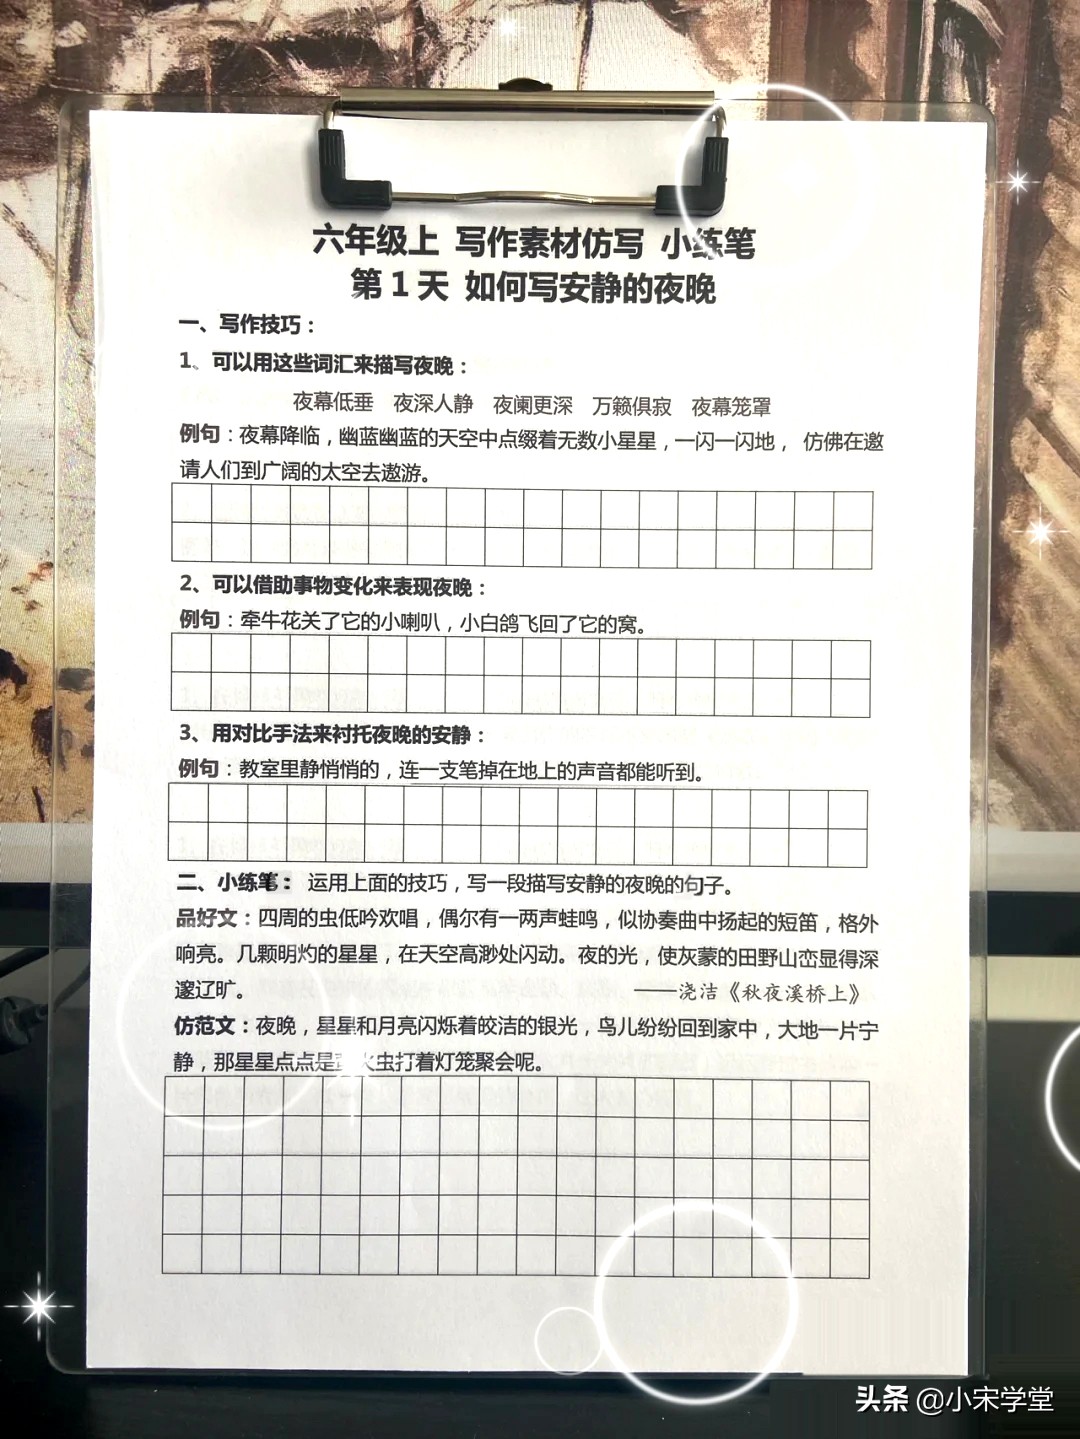 六年级上 写作素材仿写 小练笔
第1天 如何写安静的夜晚
一、写作技巧：
1、可以用这些词汇来描写夜晚：
夜幕低垂 夜深人静 夜阑更深 万籁俱寂 夜幕笼罩
例句：夜幕降临，幽蓝幽蓝的天空中点缀着无数小星星，一闪一闪地， 仿佛在邀
请人们到广阔的太空去遨游。
2、可以借助事物变化来表现夜晚：
例句：牵牛花关了它的小喇叭，小白鸽飞回了它的窝。
3、用对比手法来衬托夜晚的安静：
例句：教室里静悄悄的，连一支笔掉在地上的声音都能听到。
二、小练笔： 运用上面的技巧，写一段描写安静的夜晚的句子。
品好文：四周的虫低吟欢唱，偶尔有一两声蛙鸣，似协奏曲中扬起的短笛，格外
响亮。几颗明灼的星星，在天空高渺处闪动。夜的光，使灰蒙的田野山峦显得深
邃辽旷。 —浇洁《秋夜溪桥上》
仿范文：夜晚，星星和月亮闪烁着皎洁的银光，鸟儿纷纷回到家中，大地一片宁
静，那星星点点是萤火虫打着灯笼聚会呢。
头条 @小宋学堂